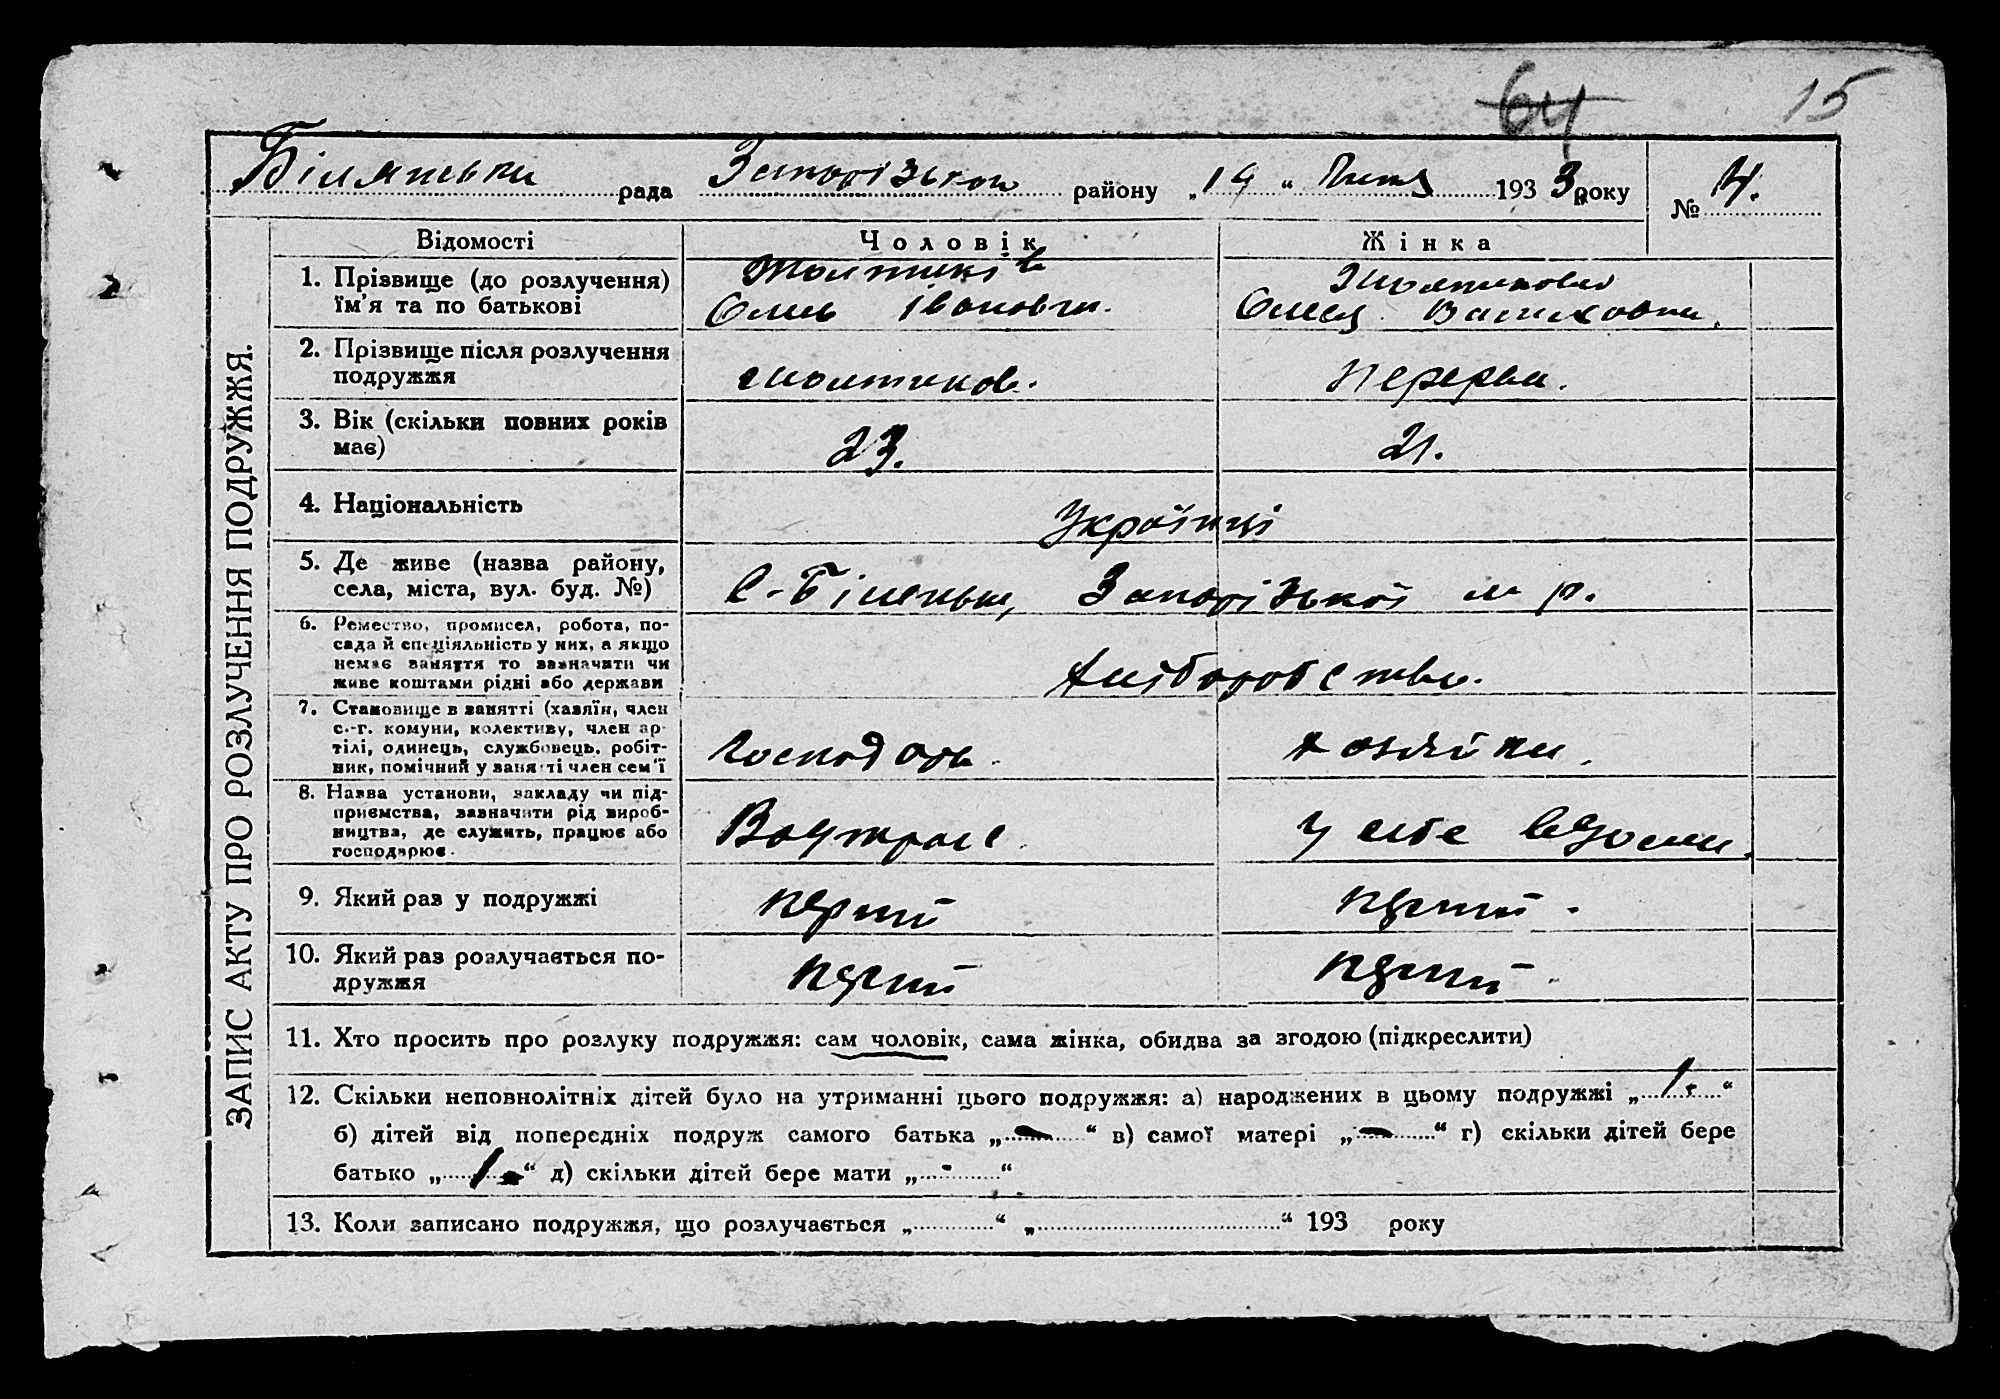 64 15
рада Запорізької району „19“ 1933 року № 14.
ЗАПИС АКТУ ПРО РОЗЛУЧЕННЯ ПОДРУЖЖЯ.
Відомості Чоловік Жінка
1. Прізвище (до розлучення)
їм'я та по батькові Іванович.
2. Прізвище після розлучення
подружжя Перерва.
3. Вік (скільки повних років
має) 23. 21.
4. Національність Українці
5. Де живе (назва району,
села, міста, вул. буд. №) С-Біленьке, Запорізької м р.
6. Ремество, промисел, робота, по-
сада й спеціяльність у них, а якщо
немає заняття то зазначити чи
живе коштами рідні або держави Хліборобство.
7. Становище в занятті (хазяїн, член
с.-г. комуни, колективу, член ар-
тілі, одинець, службовець, робіт-
ник, помічний у занятті член сем'ї Господарь. хозяйка.
8. Назва установи, закладу чи під-
приємства, зазначити рід вироб-
ництва, де служить, працює або
господарює. у себе вдома.
9. Який раз у подружжі перший перший.
10. Який раз розлучається по-
дружжя перший перший.
11. Хто просить про розлуку подружжя: сам чоловік, сама жінка, обидва за згодою (підкреслити)
12. Скільки неповнолітніх дітей було на утриманні цього подружжя: а) народжених в цьому подружжі „1.“
б) дітей від попередніх подруж самого батька „-“ в) самої матері „-“ г) скільки дітей бере
батько „1“ д) скільки дітей бере мати „-“
13. Коли записано подружжя, що розлучається „ “ „ “ 193 року